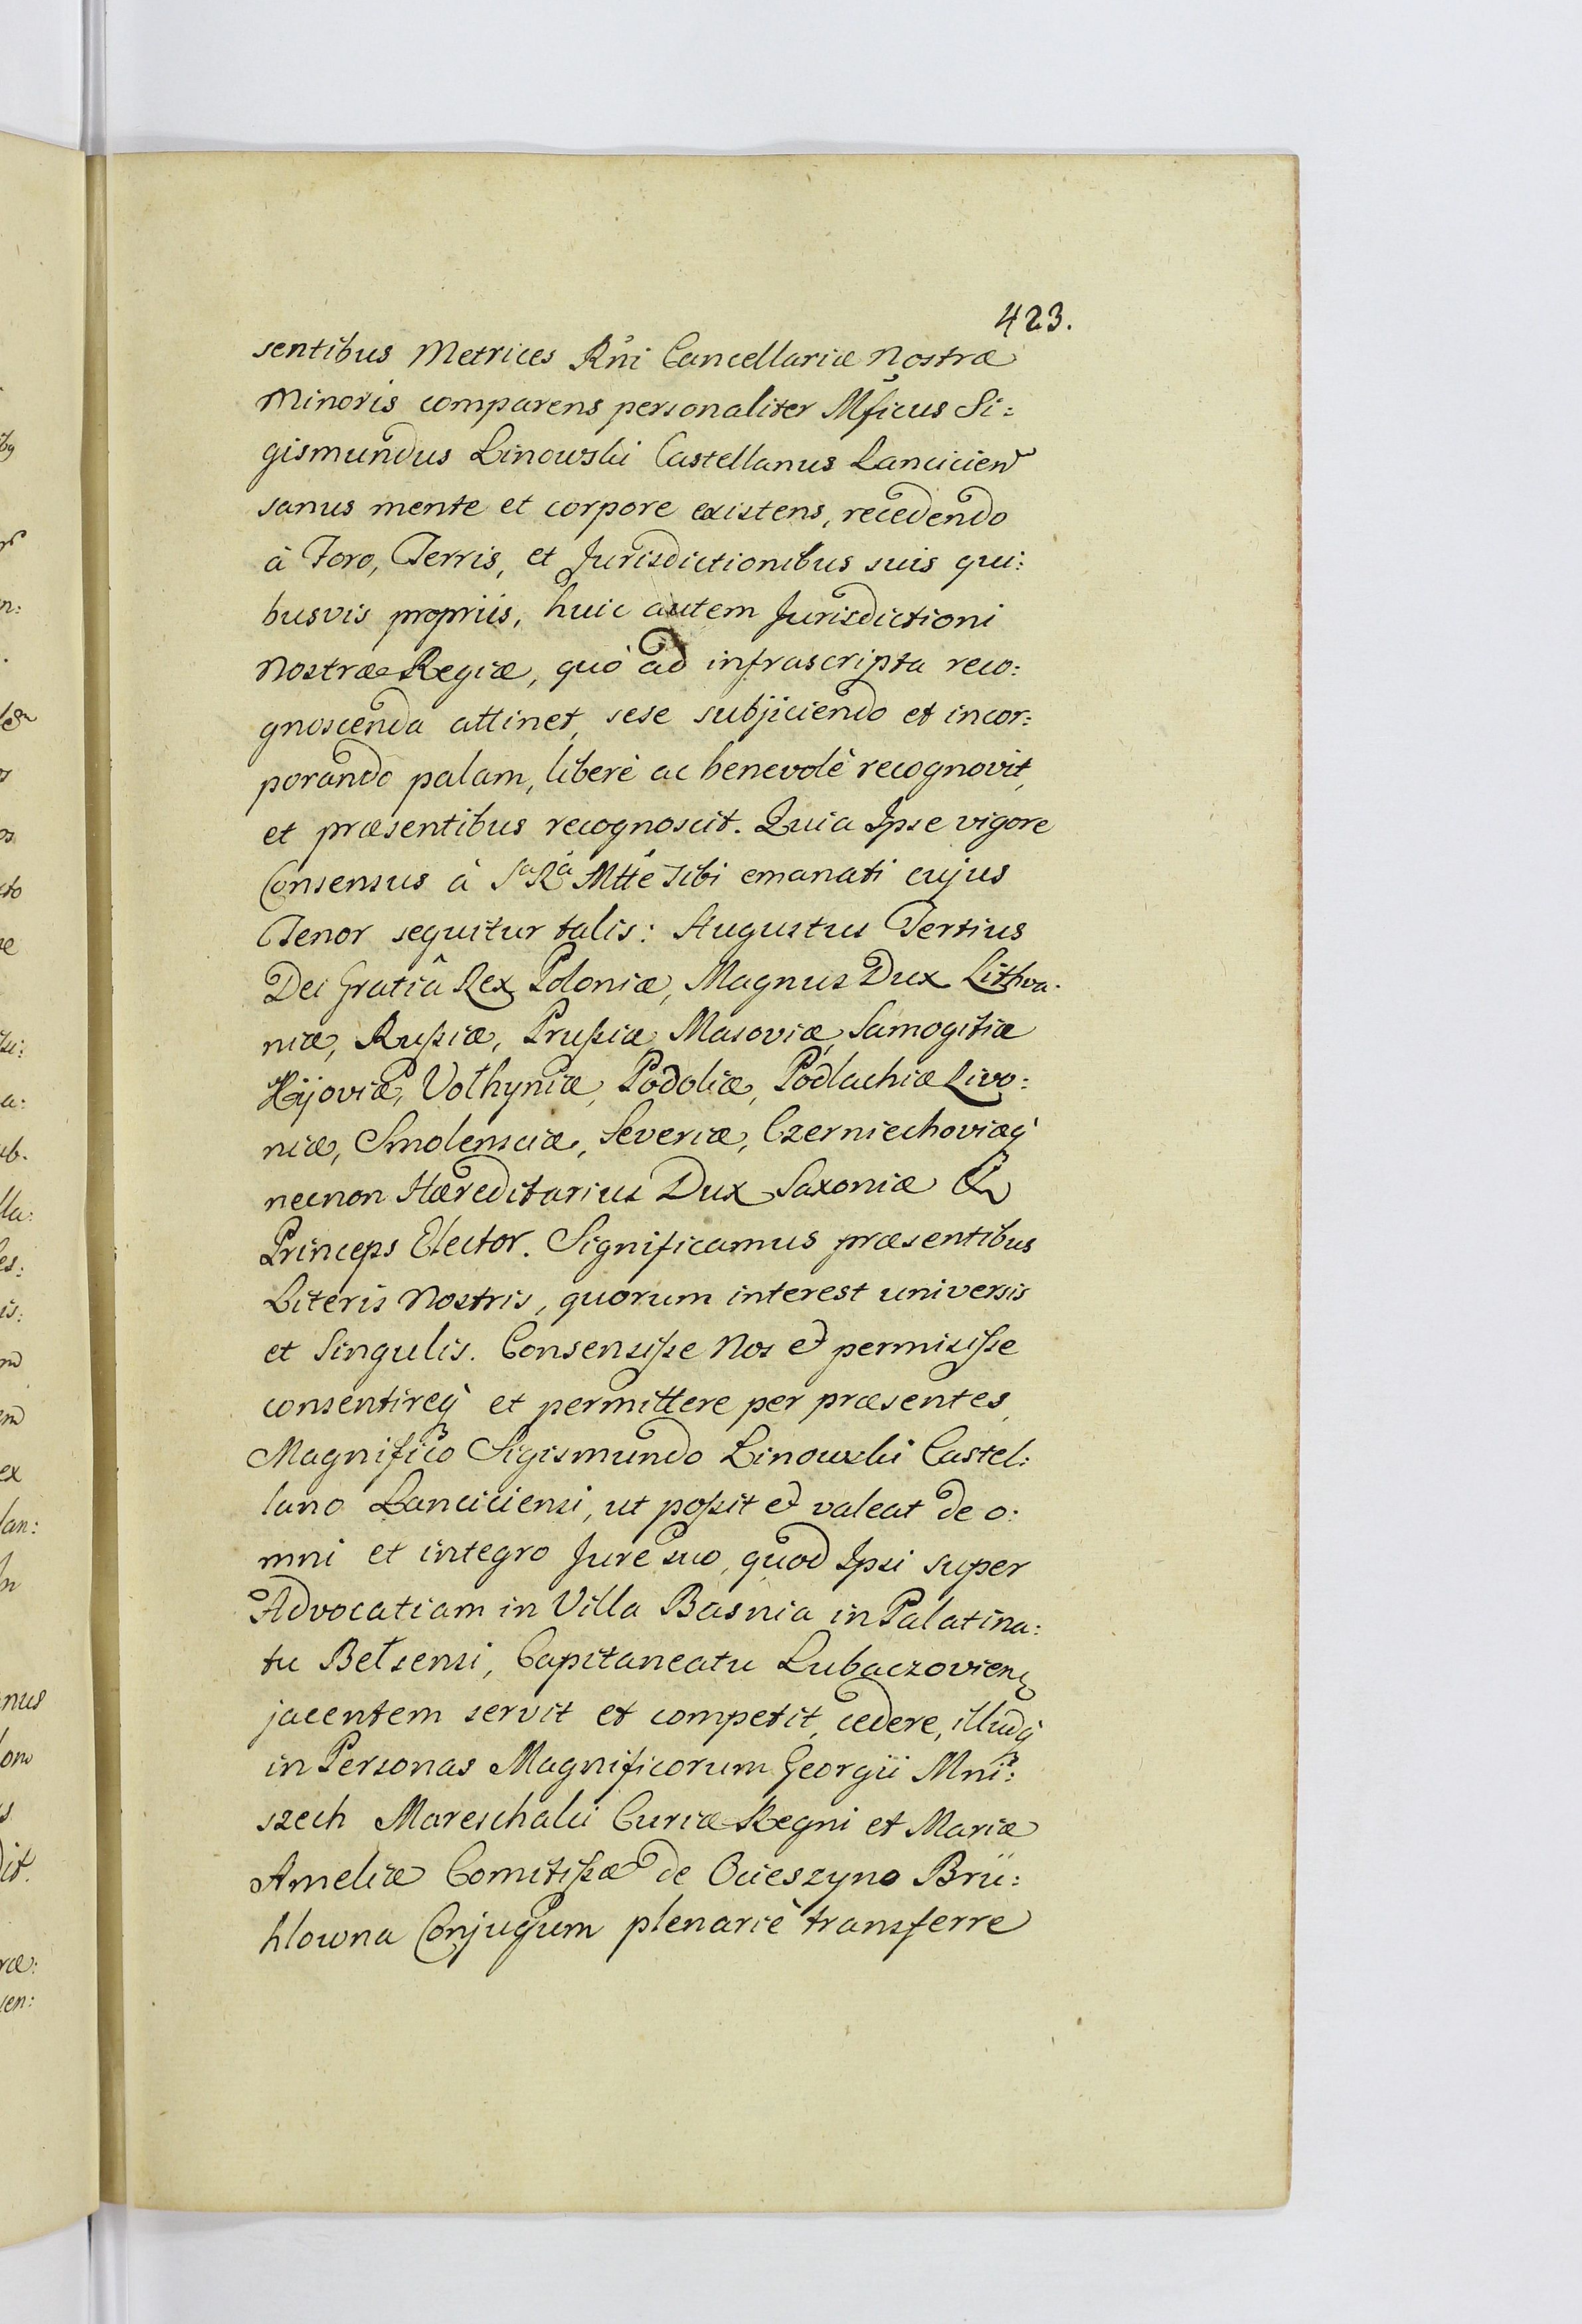 423.
sentibus Metrices Rñi Cancellariæ Nostræ
Minoris comparens personaliter Mficus Si:
gismundus Linowski Castellanus Lancicien
sanus mente et corpore existens, recedendo
à Foro, Terris, et Jurisdictionibus suis qui:
busvis propriis, huic autem Jurisdictioni
Nostræ Regiæ, quò ad infrascripta reco:
gnoscenda attinet, sese subjiciendo et incor:
porando palam, liberè ac benevolè recognovit,
et præsentibus recognoscit. Quia Ipse vigore
Consensus à Sa Rà Mtte sibi emanati cujus
Tenor sequitur talis: Augustus Tertius
Dei Gratiâ Rex Poloniæ, Magnus Dux Lithva.
niæ, Rußiæ, Prußiæ, Masoviæ, Samogitiæ
Kijoviæ, Volhyniæ, Podoliæ, Podlachiæ Livo:
niæ, Smolensciæ, Severiæ, Czerniechoviæq
necnon Hæreditarius Dux Saxoniæ &
Princeps Elector. Significamus præsentibus
Literis Nostris, quorum interest universis
et Singulis. Consensiße Nos et permisiße
consentireq et permittere per præsentes,
Magnifico Sigismundo Linowski Castel:
lano Lanciciensi, ut poßit et valeat de o:
mni et integro Jure suo, quod Ipsi super
Advocatiam in Villa Basnia in Palatina:
tu Belsensi, Capitaneatu Lubaczovien
jacentem servit et competit, cedere, illudq
in Personas Magnificorum Georgii Mni:
szech Mareschalci Curiæ Regni et Mariæ
Ameliæ Comitißæ de Ocieszyno Brü:
hlowna Conjugum plenariè transferre